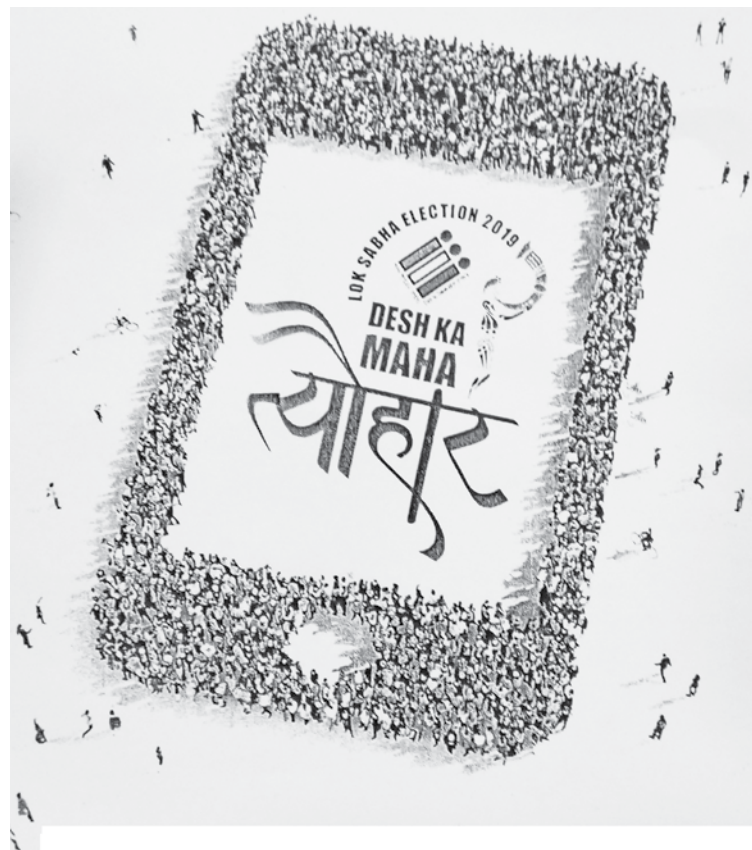 LOK SABHA ELECTION 2019
DESH KA
MAHA
त्यौहार